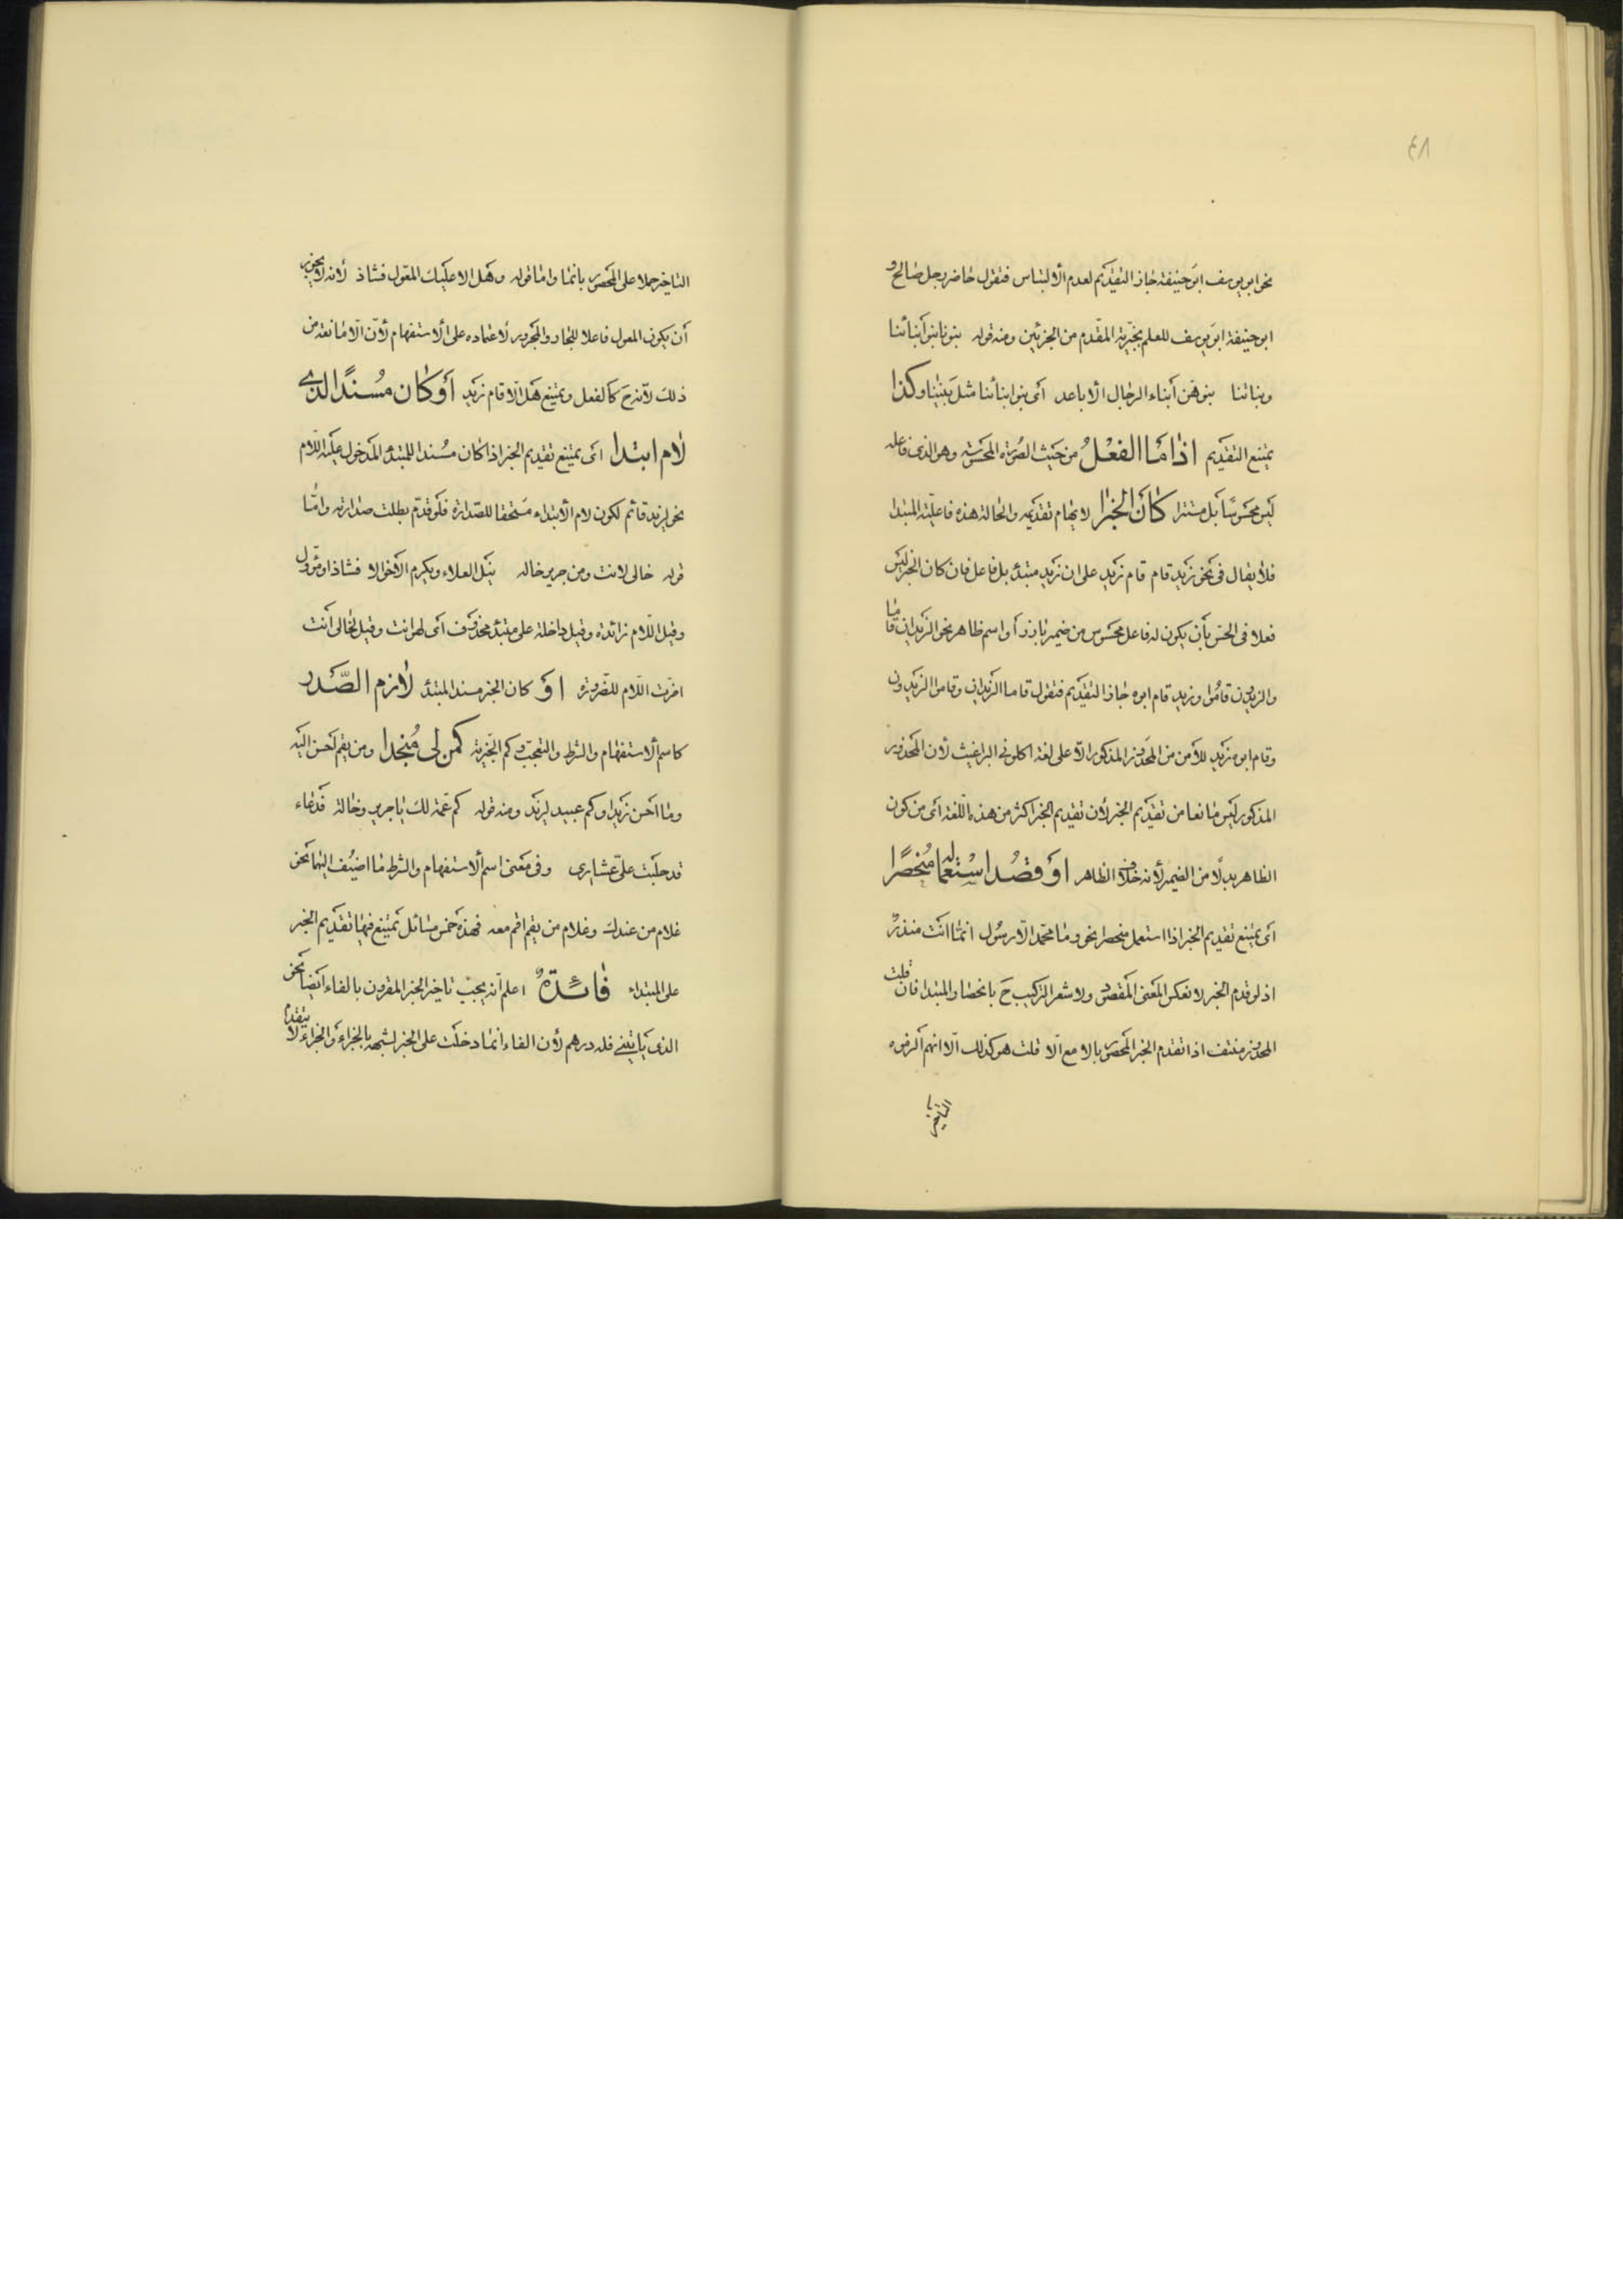 ٤٨
نحو ابو يوسف ابو حنيفة جاز التقديم لعدم الالتباس فتقول حاضر رجل صالح و
ابو حنيفة ابو يوسف للعلم بخبرية المقدم من الجزئين ومنه قوله بنونا بنو أبنائنا
وبناتنا بنوهن أبناء الرجال الاباعد أى بنوا بنائنا مثل بنينا وكذا
يمتنع التقديم اذا ما الفعل من حيث الصورة المحسوسة وهو الذى فاعله
ليس محسوسا بل مستترا كان الخبرا لايهام تقديمه والحالة هذه فاعلية المبتدا
فلا يقال فى نحو زيد قام قام زيد على ان زيد مبتدء بل فاعل فان كان الخبر ليس
فعلا فى الحس بأن يكون له فاعل محسوس من ضمير بارز أو اسم ظاهر نحو الزيدان قاما
والزيدون قاموا وزيد قام ابوه جاز التقديم فتقول قاما الزيدان وقاموا الزيدون
وقام ابوه زيد للأمن من المحذور المذكور الا على لغة اكلونى البراغيث لأن المحذور
المذكور ليس مانعا من تقديم الخبر لأن تقديم الخبر اكثر من هذه اللغة اى من كون
الظاهر بدلا من الضمير لأنه خلاف الظاهر او قصد استعماله منحصرا
أى يمتنع تقديم الخبر اذا استعمل منحصرا نحو وما محمد الا رسول انما انت منذر
اذ لو قدم الخبر لانعكس المعنى المقصود ولاشعر التركيب ح بانحصار المبتدا فان قلت
المحذور منتف اذا تقدم الخبر المحصور بالا مع الا قلت هو كذلك الا انهم الزموه
التاخير
التاخير حملا على المحصور بانما واما قوله وهل الا عليك المعول فشاذ لأنه لا يجوز
أن يكون المعول فاعلا للجار والمجرور لاعتماده على الاستفهام لأن الا مانعة من
ذلك لأنه ح كالفعل ويمتنع هل الا قام زيد أو كان مسندا لذى
لام ابتدا أى يمتنع تقديم الخبر اذا كان مسندا للمبتدء المدخول عليه اللام
نحو لزيد قائم لكون لام الأبتداء مستحقا للصدارة فلو قدم بطلت صدارته واما
قوله خالى لانت ومن جرير خاله ينل العلاء ويكرم الاخوالا فشاذ او مؤول
وقيل اللام زائدة وقيل داخلة على مبتدء محذوف أى لهو انت وقيل لخالى أنت
اخرت اللام للضرورة او كان الخبر مسند المبتدء لازم الصدر
كاسم الاستفهام والشرط والتعجب وكم الخبرية كمن لى منجدا ومن يقم احسن اليه
وما احسن زيدا وكم عبيد لزيد ومنه قوله كم عمة لك يا جرير وخالة فدعاء
قد حلبت على عشارى وفى معنى اسم الاستفهام والشرط ما اضيف اليهما نحو
غلام من عندك وغلام من يقم اقم معه فهذه خمس مسائل يمتنع فيها تقديم الخبر
على المبتداء فائدة اعلم انه يجب تاخير الخبر المقرون بالفاء ايضا نحو
الذى ياتينى فله درهم لأن الفاء انما دخلت على الخبر لشبهه بالجزاء والجزاء لا يتقدم